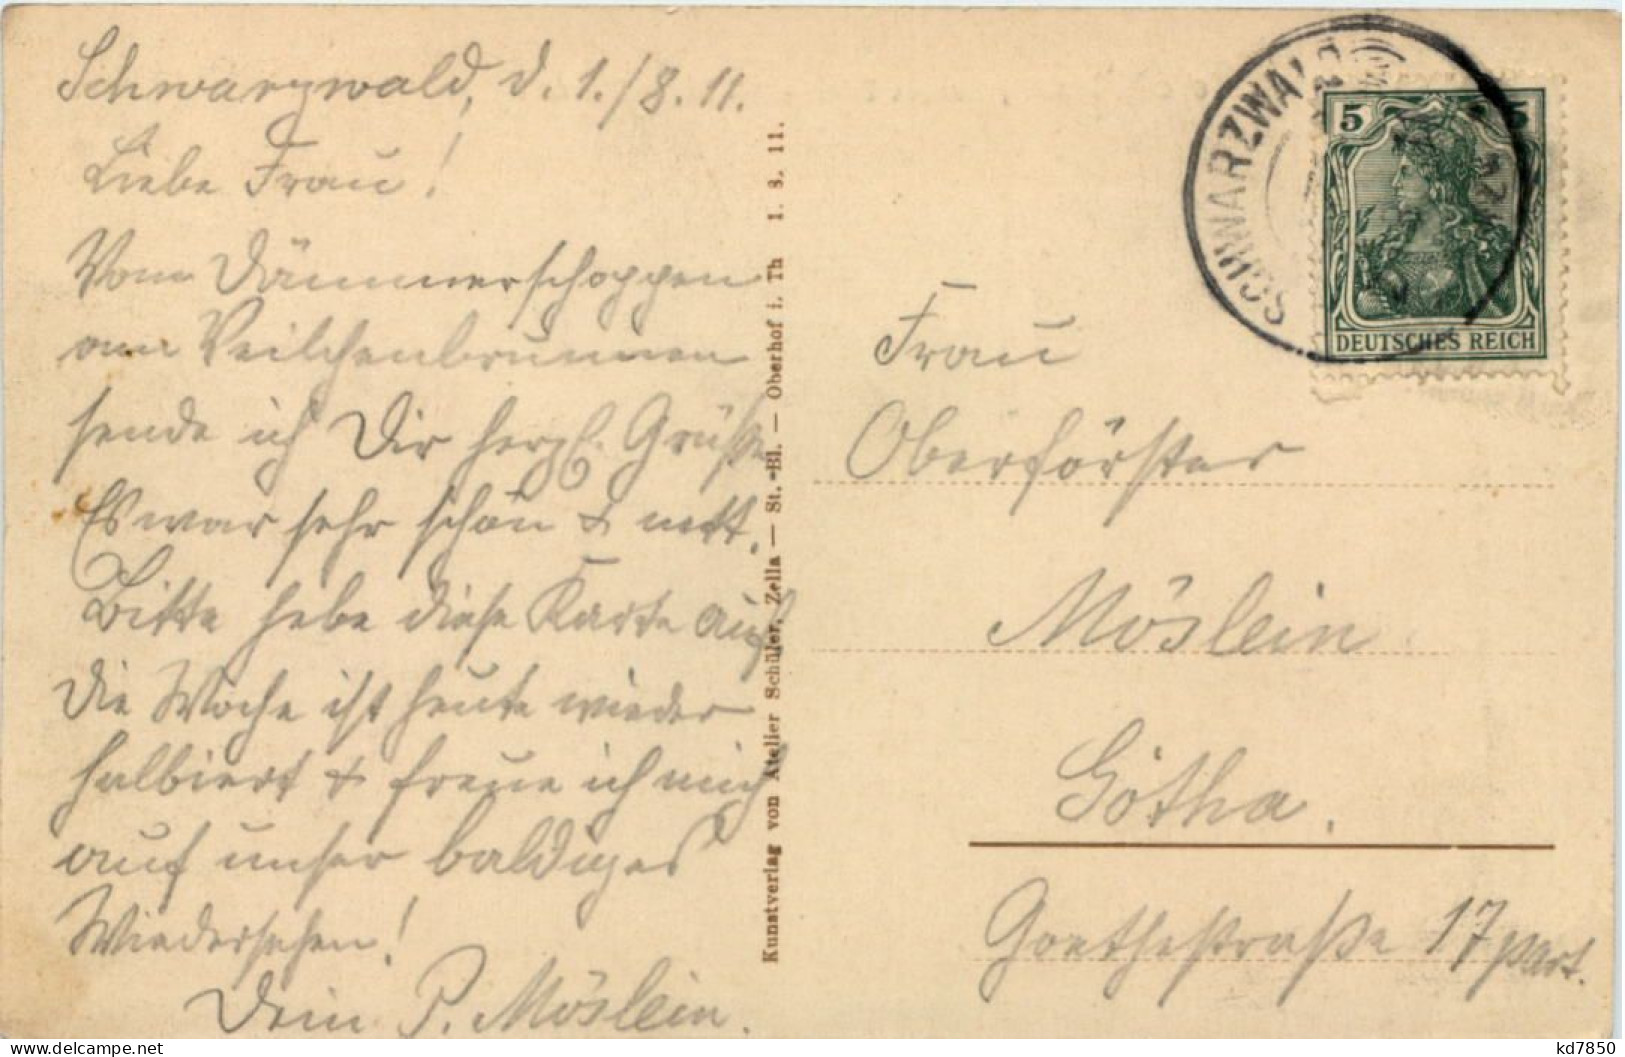 Schwarzwald, d. 1./8. 11.
Liebe Frau!
Vom Dämmerschoppen
am Veilchenbrunnen
sende ich Dir herzl. Grüße
Es war sehr schön & nett.
Bitte hebe diese Karte auf
die Woche ist heute wieder
halbiert & freue ich mich
auf unser baldiges
Wiedersehen!
Dein P. Möslein.
Kunstverlag von Atelier Schüller, Zella — St.-Bl. — Oberhof i. Th 1. 8. 11.
SCHWARZWALD
5 5
DEUTSCHES REICH
Frau
Oberförster
Möslein
Gotha.
Goethestraße 17 part.
kd7850